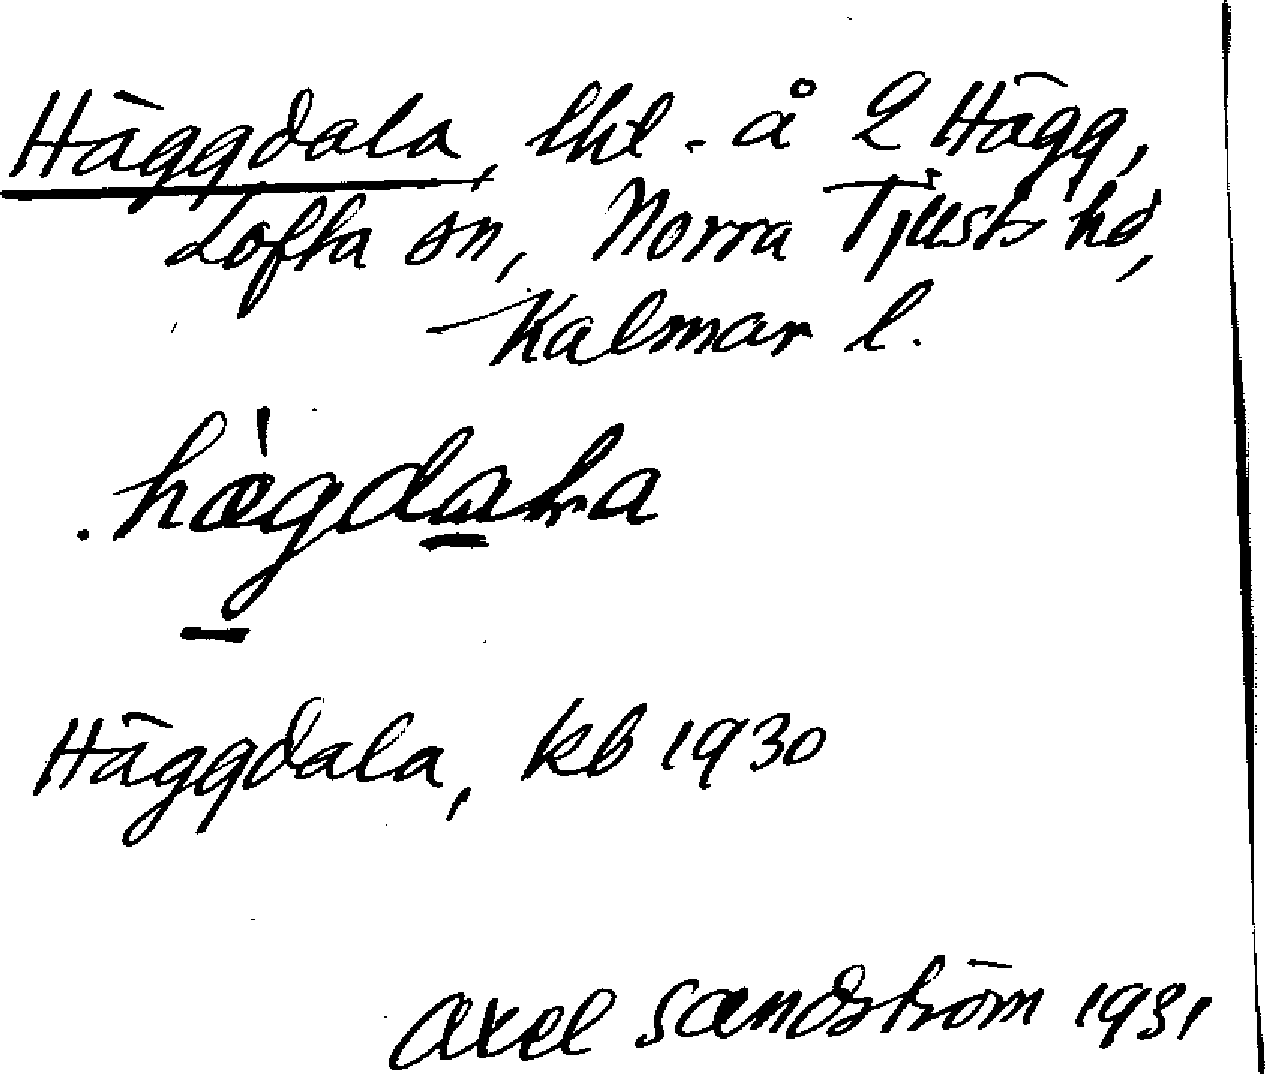 Häggdala, lht. å 2 Hägg,
Lofta sn, Norra Tjusts hd,
Kalmar l.
Häggdala, kb 1930
Axel Sandström 1931